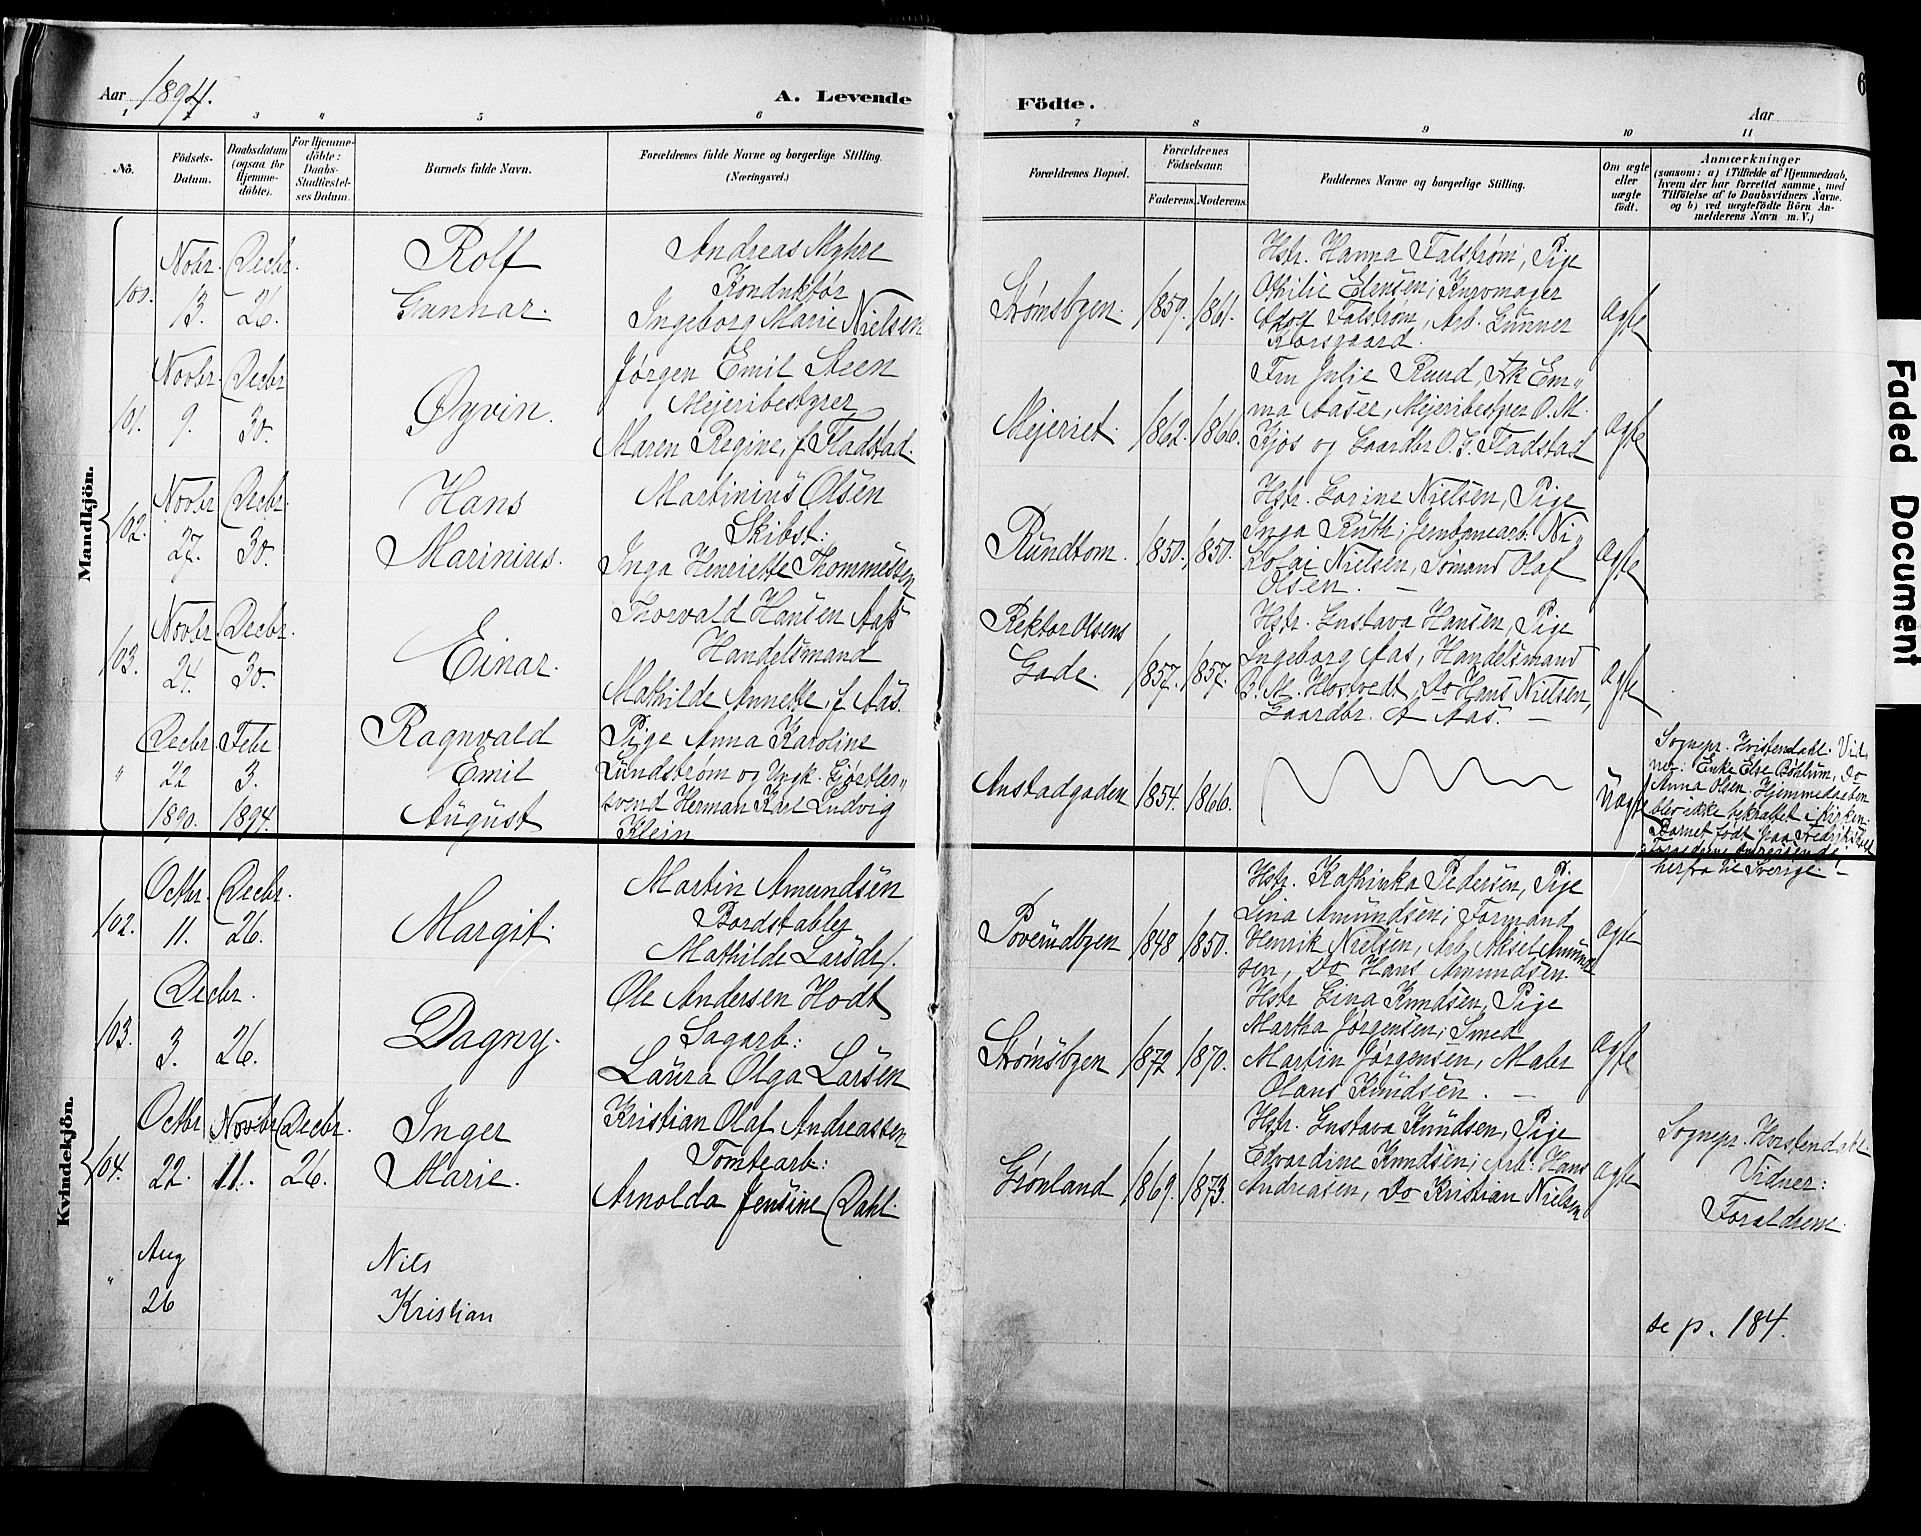 Aar 1894.
A. Levende
Födte.
Aar
6
1 3 4 5 6 7 8 9 10 11
No.
Födsels-Datum.
Daabsdatum (ogsaa for Hjemme-döbte).
For Hjemme-döbte: Daabs-Stadfæstel-ses Datum.
Barnets fulde Navn.
Forældrenes fulde Navne og borgerlige Stilling.
(Næringsvei.)
Forældrenes Bopæl.
Forældrenes Födselsaar.
Faderens. Moderens.
Faddernes Navne og borgerlige Stilling.
Om ægte eller uægte födt.
Anmærkninger
(saasom: a) i Tilfælde af Hjemmedaab,
hvem der har forrettet samme, med
Tilföielse af to Daabsvidners Navne.
og b) ved uægtefödte Börn An-
melderens Navn m. V.)
Mandkjön.
101.
Novbr. 13.
Decbr. 26.
Rolf
Gunnar.
Andreas Myhre
Konduktør
Ingeborg Marie Nielsen
Strømsbyen.
1859. 1861.
Hstr. Hanna Falstrøm, Pige
Othilie Elensen; Kurvmager
Adolf Falstrøm, Arb. Gunner
Korsgaard.
ægte
101.
Novbr. 9.
Decbr 30.
Øyvin.
Jørgen Emil Steen
Mejeribestyrer
Maren Regine, f Fladstad.
Mejeriet.
1862. 1866.
Fru Julie Ruud, Frk Em"
ma Aaser, Mejeribestyrer O. M.
Kjos og Gaardbr O. G. Fladstad
ægte
102.
Novbr 27.
Decbr. 30.
Hans
Marinius.
Martinius Olsen
Skibst:
Inga Henriette Thommessen
Rundtom.
1850. 1850.
Hstr. Gorine Nielsen, Pige
Inga Ruth; Jernbanearb. Ni"
kolai Nielsen, Sømand Olaf
Olsen. –
ægte
103.
Novbr 24.
Decbr. 30.
Einar.
Thorvald Hansen Aas
Handelsmand
Mathilde Annette, f Aas.
Rektor Olsens
Gade.
1857. 1857.
Hstr. Gustava Hansen, Pige
Ingeborg Aas, Handelsmand
B. M. Horvedt, Do Hans Nielsen,
Gaardbr. A Aas. –
ægte
"
Decbr. 22 1890.
Febr 3. 1894.
Ragnvald
Emil
August
Pige Anna Karoline
Lundstrøm og Ungk. Gjørtler"
svend Herman Karl Ludvig
Klein
Anstadgaden
1854. 1866.
Uægte
Sognepr. Hvistendahl. Vid-
ner: Enke Else Bøhlum, Do
Anna Olsen. Hjemmedaaben
blev ikke bekræftet i Kirken.
Barnet født paa Fredriksstad
Forældrene
herfra til Sverige. –
Kvindekjön.
102.
Octbr. 11.
Decbr. 26.
Margit.
Martin Amundsen
Bordstabler
Mathilde Larsdr.
Poverudbyen
1848 1850.
Hstr. Kathinka Pedersen, Pige
Lina Amundsen; Formand
Henrik Nielsen, Arb. Aksel Amund
sen, Do Hans Amundsen.
ægte
103.
Decbr. 3. 26.
Dagny.
Ole Andersen Hodt
Sagarb:
Laura Olga Larsen
Strømsbyen
1872 1870.
Hstr Lina Knudsen, Pige
Martha Jørgensen; Smed
Martin Jørgensen, Maler
Olaus Knudsen. –
ægte
104.
Octbr 22.
Novbr 11.
Decbr. 26.
Inger
Marie.
Kristian Olaf Andreassen
Tomtearb:
Arnolda Jensine Dahl.
Grønland
1869. 1873.
Hstr. Gustava Knudsen, Pige
Edvardine Knudsen; Arb. Hans
Andreasen, Do Kristian Nielsen
ægte
Sognepr. Hvistendahl
Vidner:
Forældrene.
"
Aug
26
Nils
Kristian
se p. 184.
Faded Document